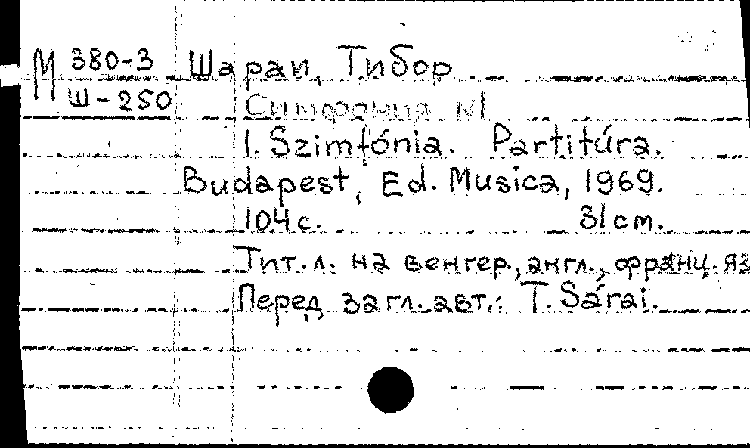 М 380-3 Шараи, Тибор
Ш-250 Симфония №1
1. Szimfónia. Partitúra.
Budapest, Ed. Musica, 1969.
104 с. 31 см.
Тит. л. на венгер., англ., франц. яз
Перед загл. авт.: T. Sárai.